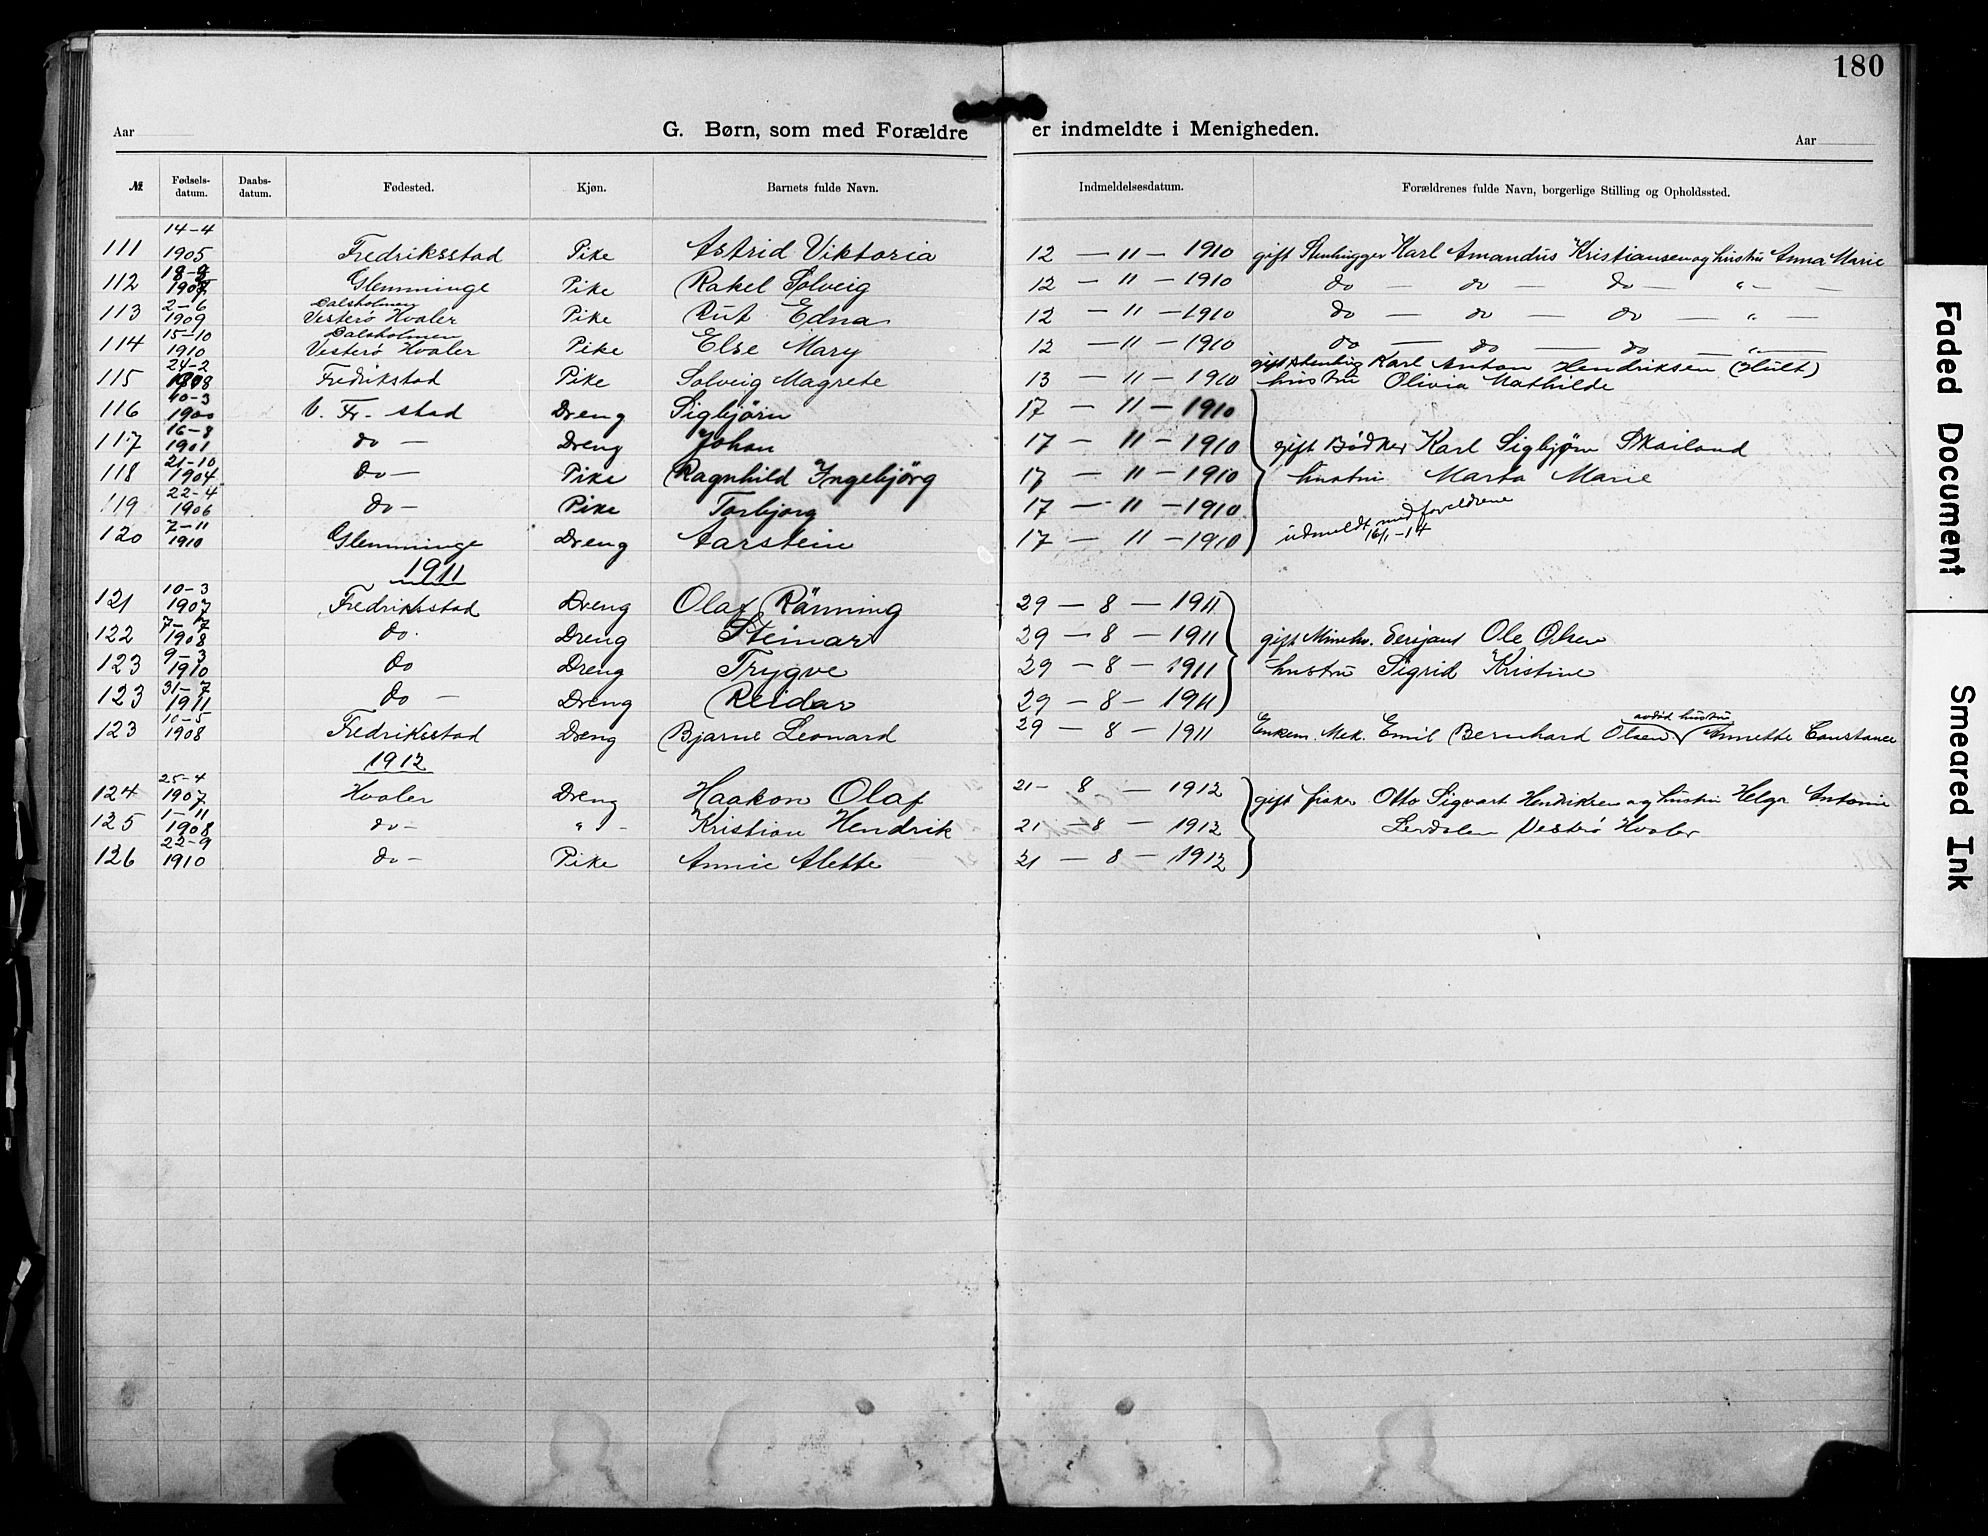 180
Aar
G. Børn, som med Forældre er indmeldte i Menigheden.
Aar
№ Fødselsdatum. Daabsdatum. Fødested. Kjøn. Barnets fulde Navn. Indmeldelsesdatum. Forældrenes fulde Navn, borgerlige Stilling og Opholdssted.
111 14-4 1905 Fredriksstad Pike Astrid Viktoria 12 - 11 - 1910 gift Stenhugger Karl Amandus Kristiansen og hustru Anna Marie
112 18-9 1907 Glemminge Pike Rakel Solveig 12 - 11 - 1910 do - do - do - " -
113 2-6 1909 Dalsholmen Vesterø Hvaler Pike Rut Edna 12 - 11 - 1910 do - do - do - " -
114 15-10 1910 Dalsholmen Vesterø Hvaler Pike Else Mary 12 - 11 - 1910 do - do - do - " -
115 24-2 1908 Fredrikstad Pike Solveig Magrete 13 - 11 - 1910 gift stenhug Karl Anton Hendriksen (Hult) hustru Olivia Mathilde
116 10-3 1900 V. Fr. stad Dreng Sigbjørn 17 - 11 - 1910
117 16-8 1901 do - Dreng Johan 17 - 11 - 1910 gift Bødker Karl Sigbjørn Skailand
118 21-10 1904 do - Pike Ragnhild Ingebjörg 17 - 11 - 1910 hustru Marta Marie
119 22-4 1906 do - Pike Torbjørg 17 - 11 - 1910
120 7-11 1910 Glemminge Dreng Aarstein 17 - 11 - 1910 udmeldt med foreldrene 16/1 - 14
1911
121 10-3 1907 Fredriksstad Dreng Olaf Ränning 29 - 8 - 1911
122 7-7 1908 do. Dreng Steinar 29 - 8 - 1911 gift Minehv. Sersjant Ole Olsen
123 9-3 1910 do Dreng Trygve 29 - 8 - 1911 hustru Sigrid Kristine
123 31-7 1911 do - Dreng Reidar 29 - 8 - 1911
123 10-5 1908 Fredriksstad Dreng Bjarne Leonard 29 - 8 - 1911 Enkem. Mek. Emil Bernhard Olsen. avdød hustru Annette Constance
1912
124 25-4 1907 Hvaler Dreng Haakon Olaf 21 - 8 - 1912 gift fisker Otto Sigvart Hendriksen og hustru Helga Antonie
125 1-11 1908 do - " - Kristian Hendrik 21 - 8 - 1912 Lerdalen Vesterø Hvaler
126 22-9 1910 do - Pike Annie Alette 21 - 8 - 1912
Faded Document
Smeared Ink